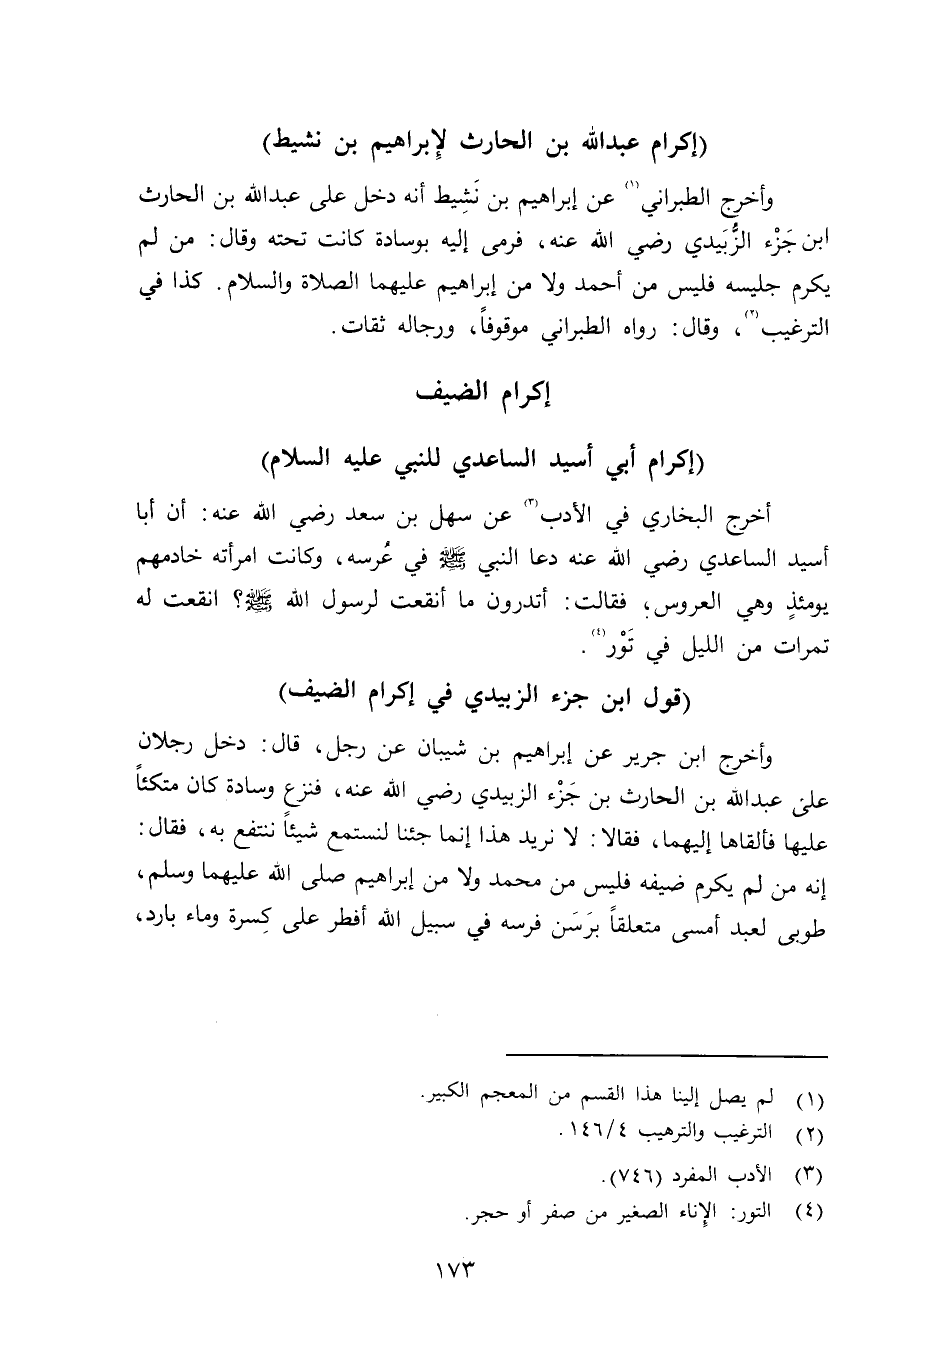 (إكرام عبدالله بن الحارث لإبراهيم بن نشيط)
وأخرج الطبراني(١) عن إبراهيم بن نَشِيط أنه دخل على عبدالله بن الحارث
ابن جَزْء الزُّبَيدي رضي الله عنه، فرمى إليه بوسادة كانت تحته وقال: من لم
يكرم جليسه فليس من أحمد ولا من إبراهيم عليهما الصلاة والسلام. كذا في
الترغيب(٢)، وقال: رواه الطبراني موقوفاً، ورجاله ثقات.
إكرام الضيف
(إكرام أبي أسيد الساعدي للنبي عليه السلام)
أخرج البخاري في الأدب(٣) عن سهل بن سعد رضي الله عنه: أن أبا
أسيد الساعدي رضي الله عنه دعا النبي ﷺ في عُرسه، وكانت امرأته خادمهم
يومئذٍ وهي العروس، فقالت: أتدرون ما أنقعت لرسول الله ﷺ؟ انقعت له
تمرات من الليل في تَوْر(٤).
(قول ابن جزء الزبيدي في إكرام الضيف)
وأخرج ابن جرير عن إبراهيم بن شيبان عن رجل، قال: دخل رجلان
على عبدالله بن الحارث بن جَزْء الزبيدي رضي الله عنه، فنزع وسادة كان متكئاً
عليها فألقاها إليهما، فقالا: لا نريد هذا إنما جئنا لنستمع شيئاً ننتفع به، فقال:
إنه من لم يكرم ضيفه فليس من محمد ولا من إبراهيم صلى الله عليهما وسلم،
طوبى لعبد أمسى متعلقاً برَسَن فرسه في سبيل الله أفطر على كِسرة وماء بارد،
(١) لم يصل إلينا هذا القسم من المعجم الكبير.
(٢) الترغيب والترهيب ١٤٦/٤.
(٣) الأدب المفرد (٧٤٦).
(٤) التور: الإناء الصغير من صفر أو حجر.
١٧٣